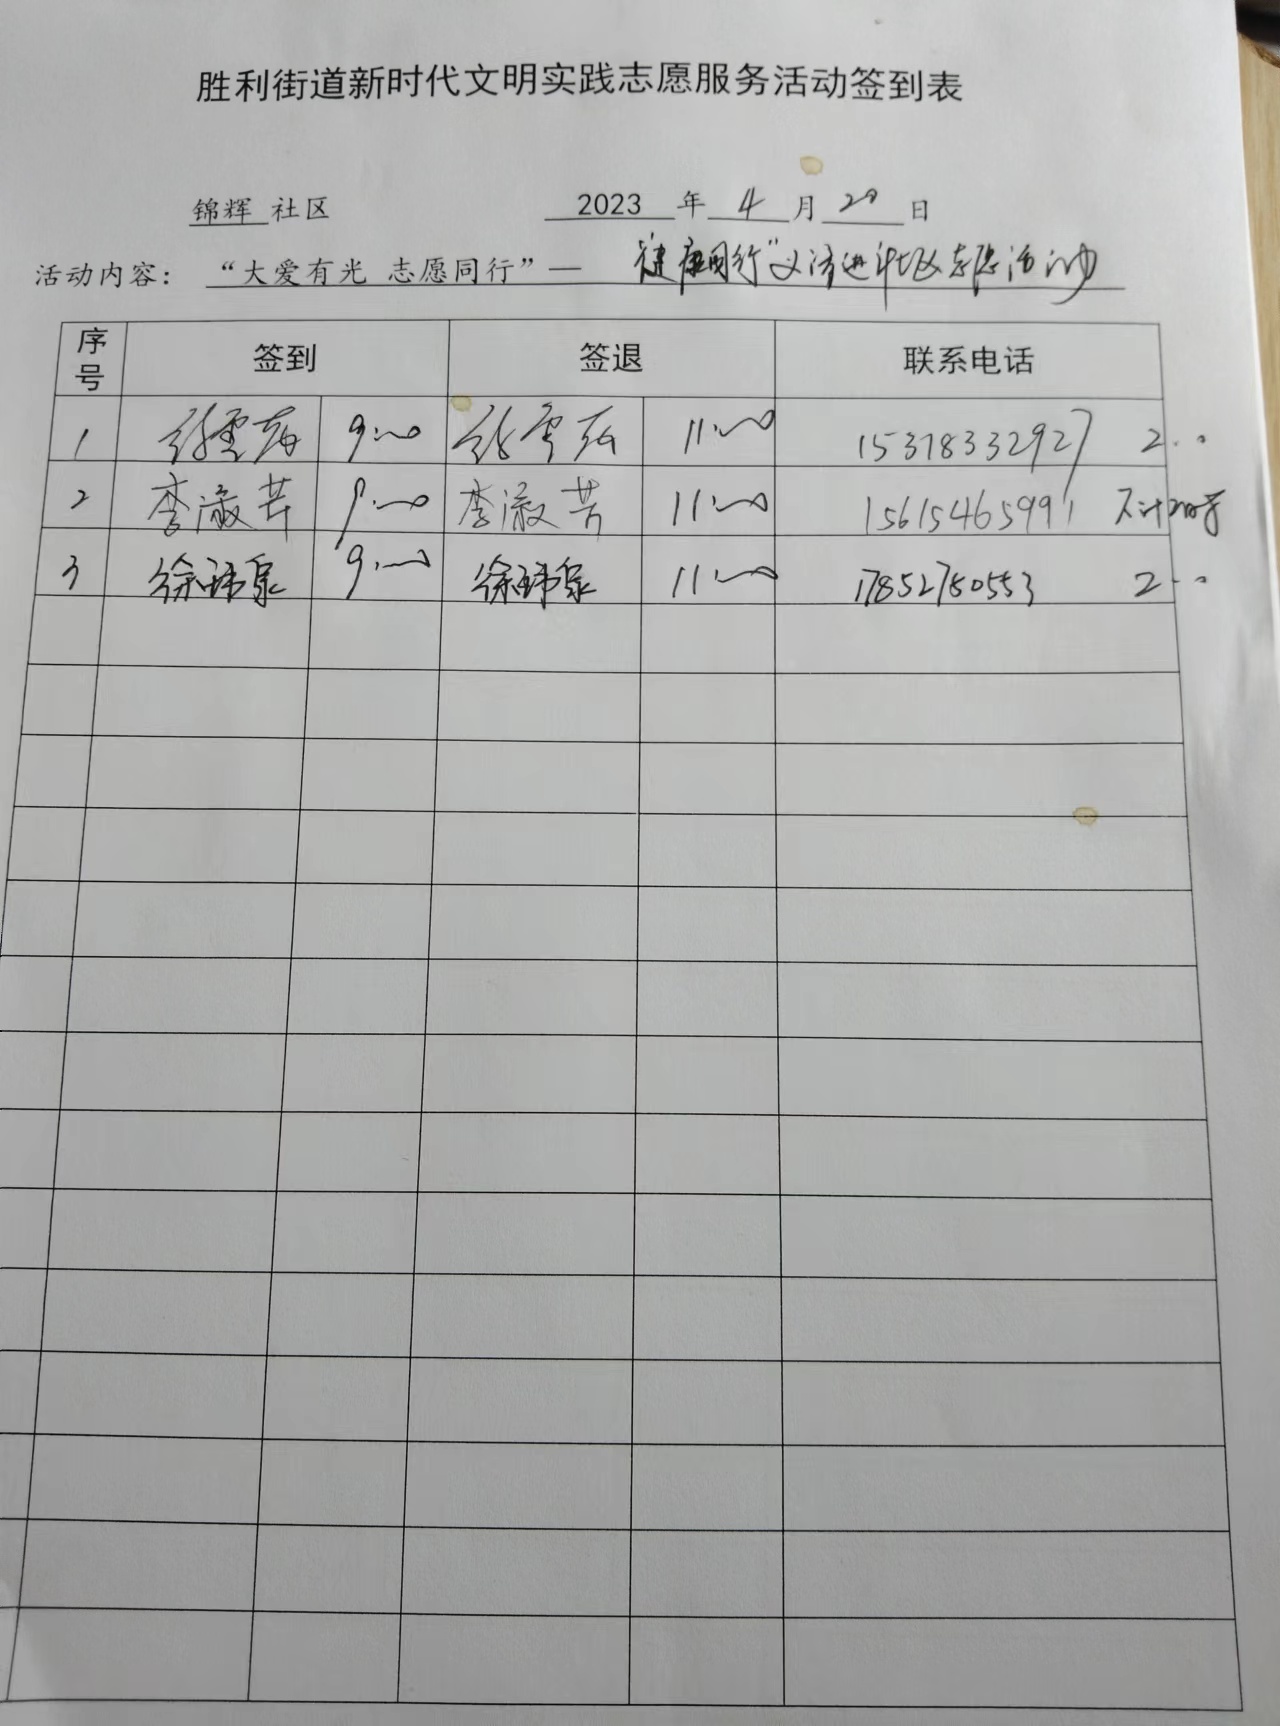 胜利街道新时代文明实践志愿服务活动签到表
锦辉 社区 2023 年 4 月 20 日
活动内容： “大爱有光 志愿同行”— “健康同行”义诊进社区志愿活动
序号 签到 签退 联系电话
1 9:00 11:00 15318332927 2..
2 李淑芹 9:00 李淑芳 11:00 15615465991
3 徐玮泉 9:00 徐玮泉 11:00 17852750553 2..